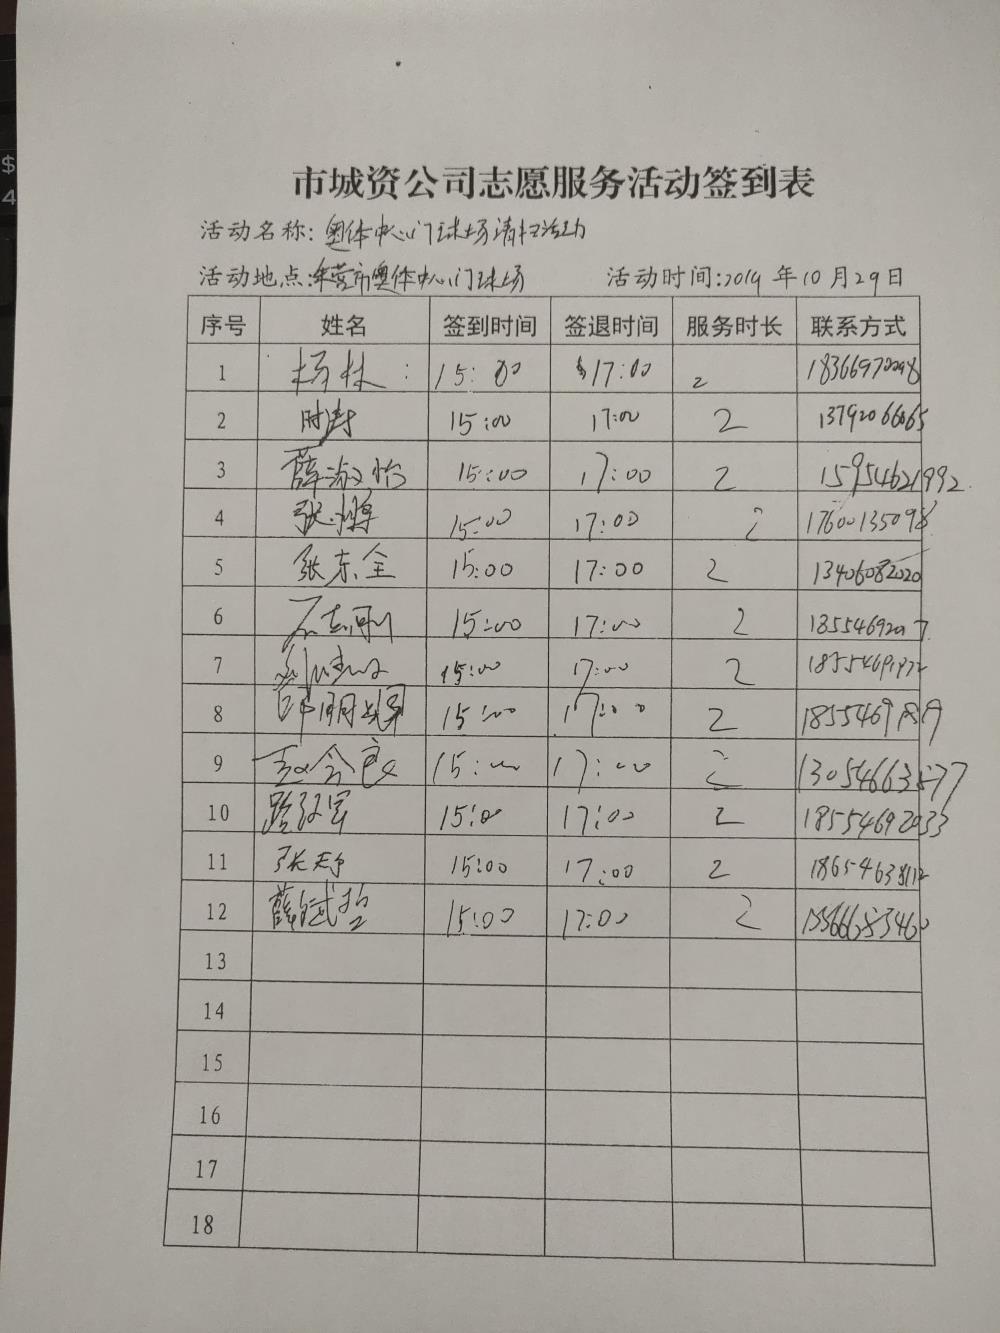 $
4
市城资公司志愿服务活动签到表
活动名称：奥体中心门球场清扫活动
活动地点：东营市奥体中心门球场 活动时间：2019年10月29日
序号 姓名 签到时间 签退时间 服务时长 联系方式
1 杨林 15:00 17:00 2
2 时涛 15:00 17:00 2 13792066065
3 薛淑怡 15:00 17:00 2 15954621992
4 15:00 17:00 2 17600135098
5 张东全 15:00 17:00 2 13406082020
6 石志刚 15:00 17:00 2
7 15:00 17:00 2
8 15:00 17:00 2
9 15:00 17:00 2 13054663577
10 15:00 17:00 2 18554692933
11 15:00 17:00 2
12 15:00 17:00 2
13
14
15
16
17
18